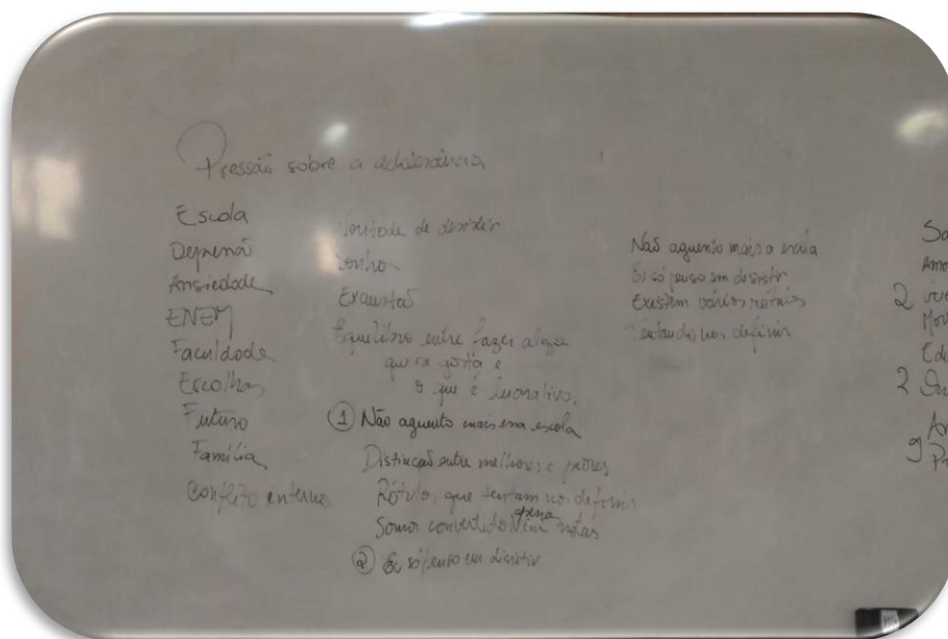 Pressão sobre a adolescência
Escola
Depressão
Ansiedade
ENEM
Faculdade
Escolhas
Futuro
Família
Conflito interno
Vontade de desistir
Sonhos
Exaustão
Equilíbrio entre fazer algo
que se gosta e
o que é lucrativo.
① Não aguento mais essa escola
Distinção entre melhores e piores
Rótulos que tentam nos definir
Somos convertidos apenas em notas
② Eu só penso em desistir
Não aguento mais a escola
Eu só penso em desistir
Existem vários rótulos
tentando nos definir
2
2
9